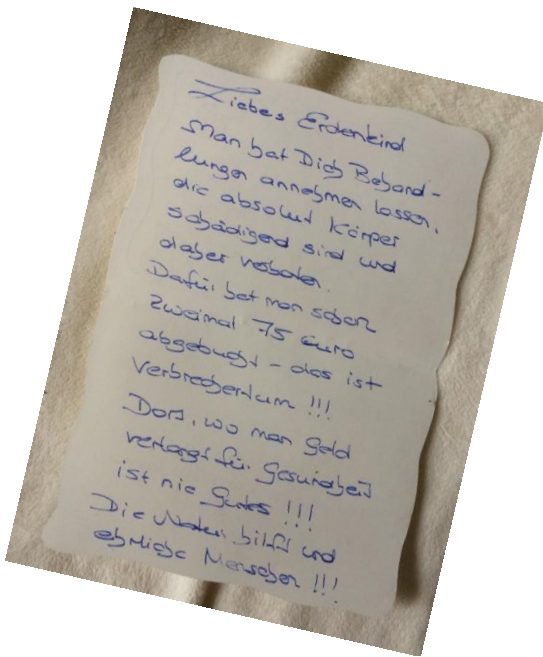 Liebes Erdenkind
Man hat Dich Behand-
lungen annehmen lassen,
die absolut Körper
schädigend sind und
daher verboten.
Dafür hat man schon
zweimal 75 Euro
abgebucht - das ist
Verbrechertum !!!
Dort, wo man Geld
verlangt für Gesundheit
ist nie Gutes !!!
Die Natur hilft und
ehrliche Menschen !!!